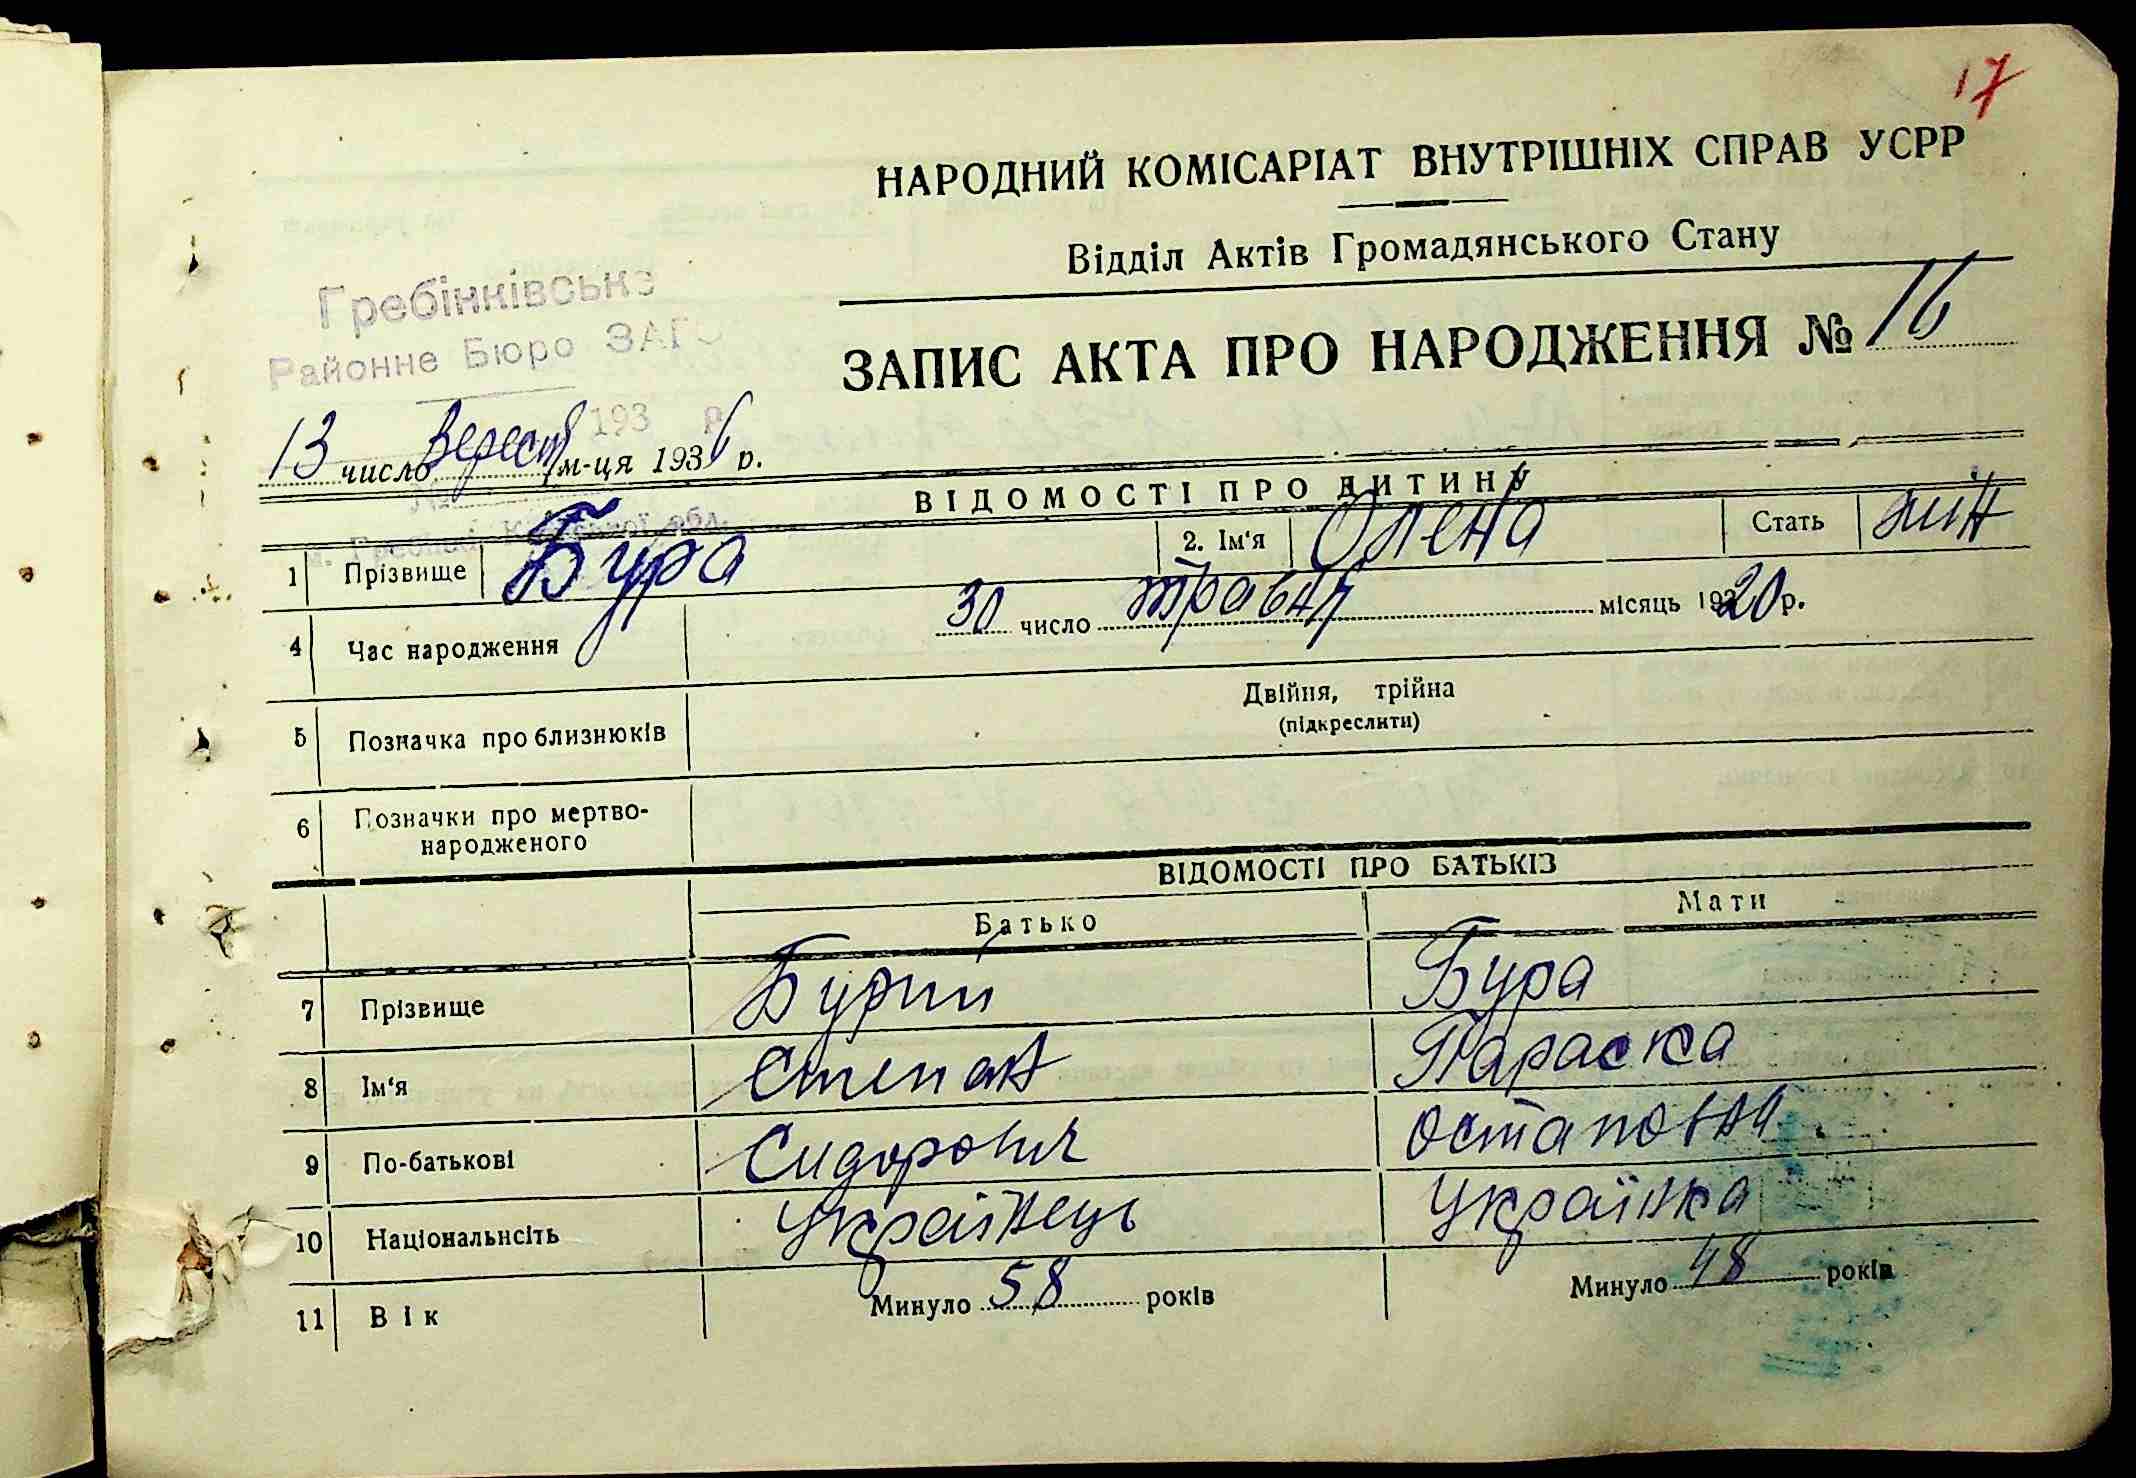 17
НАРОДНИЙ КОМІСАРІАТ ВНУТРІШНІХ СПРАВ УСРР
Відділ Актів Громадянського Стану
Гребінківське
Районне Бюро ЗАГС
ЗАПИС АКТА ПРО НАРОДЖЕННЯ № 16
193 р.
13 число Вересня м-ця 1936 р.
ВІДОМОСТІ ПРО ДИТИНУ
1 Прізвище Бура 2. Ім'я Олена Стать жін
4 Час народження 30 число травня місяць 1920 р.
5 Позначка про близнюків Двійня, трійня
(підкреслити)
6 Позначки про мертво-
народженого
ВІДОМОСТІ ПРО БАТЬКІВ
Батько Мати
7 Прізвище Бурий Бура
8 Ім'я Степан Параска
9 По-батькові Сидорович Остаповна
10 Національнсіть Українець Українка
11 Вік Минуло 58 років Минуло 48 років